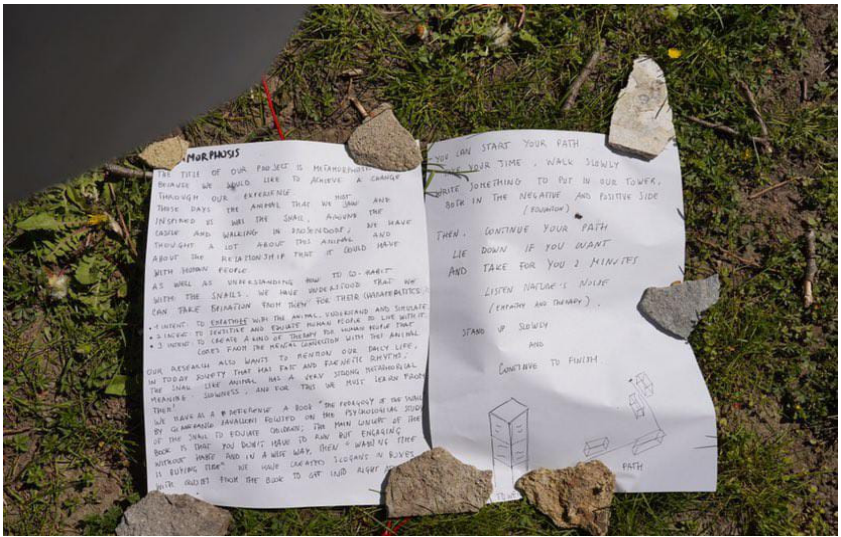 MORPHOSIS
THE TITLE OF OUR PROJECT IS METAMORPHOSIS
BECAUSE WE WOULD LIKE TO ACHIEVE A CHANGE
THROUGH OUR EXPERIENCE
THESE DAYS THE ANIMAL THAT WE SAW AND MOST
INSPIRED US WAS THE SNAIL. AROUND THE
CASTLE AND WALKING IN WE HAVE
THOUGHT A LOT ABOUT THIS ANIMAL AND
ABOUT THE RELATIONSHIP THAT IT COULD HAVE
WITH HUMAN PEOPLE
AS WELL AS UNDERSTANDING HOW TO CO-HABIT
WITH THE SNAILS. WE HAVE UNDERSTOOD THAT WE
CAN TAKE FROM THEM FOR THEIR CHARACTERISTICS
• 1 INTENT: TO EMPATHISE WITH THE ANIMAL, UNDERSTAND AND SIMULATE
• 2 INTENT: TO AND EDUCATE HUMAN PEOPLE TO LIVE WITH IT.
• 3 INTENT: TO CREATE A KIND OF THERAPY FOR HUMAN PEOPLE THAT
COMES FROM THE MENTAL CONNECTION WITH THIS ANIMAL
OUR RESEARCH ALSO WANTS TO MENTION OUR DAILY LIFE,
IN TODAY SOCIETY THAT HAS FAST AND FRENETIC
THE SNAIL LIKE ANIMAL HAS A VERY STRONG METAPHORICAL
MEANING: SLOWNESS, AND FOR THIS WE MUST LEARN FROM
THEM!
WE HAVE AS A REFERENCE A BOOK "THE PEDAGOGY OF THE SNAIL"
BY ZAVALLONI FOCUSED ON THE PSYCHOLOGICAL STUDY
OF THE SNAIL TO EDUCATE CHILDREN, THE MAIN OF THE
BOOK IS THAT YOU DON'T HAVE TO RUN BUT ENGAGING
WITHOUT AND IN A WISE WAY, THEN TIME
IS TIME" WE HAVE CREATED SLOGANS IN BOXES
WITH FROM THE BOOK TO GET INTO RIGHT
YOU CAN START YOUR PATH
YOUR TIME, WALK SLOWLY
WRITE SOMETHING TO PUT IN OUR TOWER,
BOTH IN THE NEGATIVE AND POSITIVE SIDE
(EDUCATION)
THEN, CONTINUE YOUR PATH
LIE DOWN IF YOU WANT
AND TAKE FOR YOU 2 MINUTES
LISTEN NATURE'S NOISE
(EMPATHY AND THERAPY).
STAND UP SLOWLY
AND
CONTINUE TO FINISH
PATH